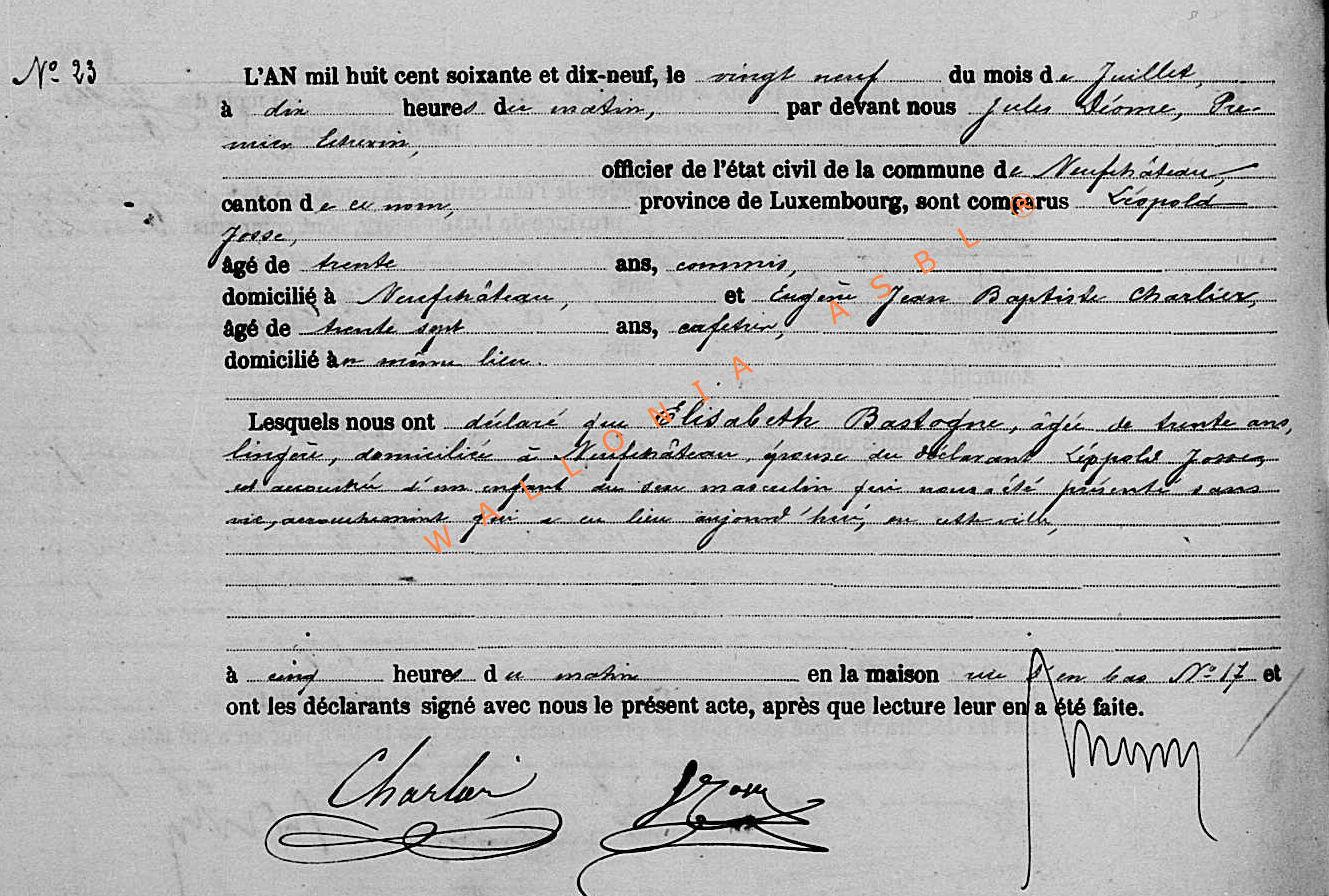 Nº 23
L'AN mil huit cent soixante et dix-neuf, le vingt neuf du mois de Juillet,
à dix heures du matin, par devant nous Jules Déome, Pre-
mier Echevin,
officier de l'état civil de la commune de Neufchâteau,
canton de ce nom, province de Luxembourg, sont comparus Léopold
Josse,
âgé de trente ans, commis,
domicilié à Neufchâteau, et Eugène Jean Baptiste Charlier,
âgé de trente sept ans, cafetier,
domicilié au même lieu.
Lesquels nous ont déclaré que Elisabeth Bastogne, âgée de trente ans,
lingère, domiciliée à Neufchâteau, épouse du déclarant Léopold Josse,
est accouchée d'un enfant du sexe masculin qui nous a été présenté sans
vie, accouchement qui a eu lieu aujourd'hui, en cette ville,
à cinq heures du matin en la maison rue d'en bas Nº 17 et
ont les déclarants signé avec nous le présent acte, après que lecture leur en a été faite.
Charlier Josse
WALLONIA ASBL ®